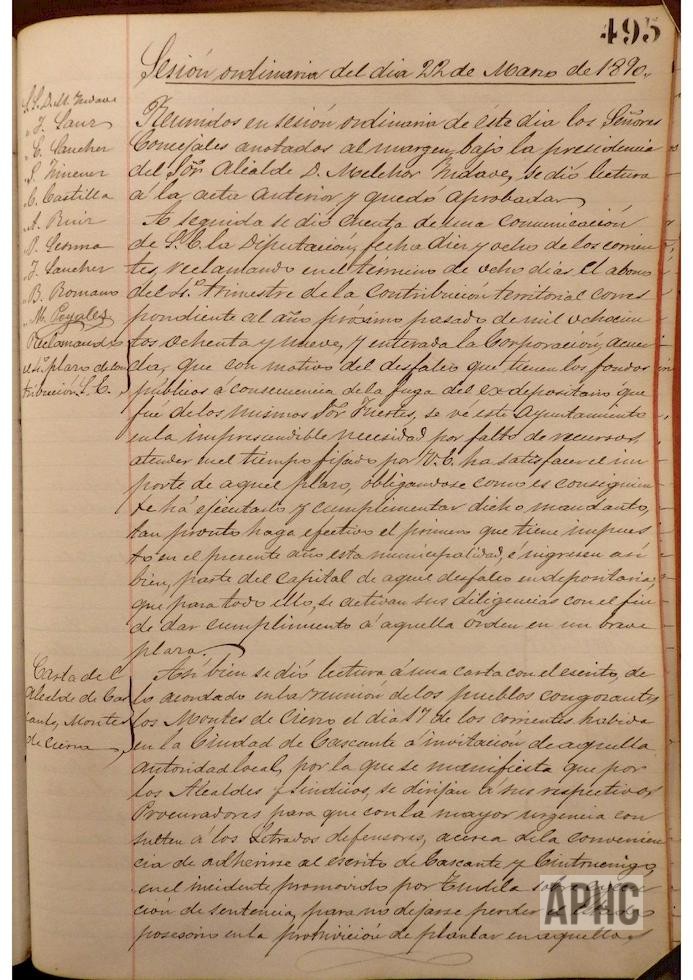 495
Sesión ordinaria del dia 22 de Marzo de 1890.
S.S. D. M. Induve
" J. Sanz
" C. Sancher
" S. Ximener
" C. Castilla
" A. Ruiz
" P. Sesma
" J. Sancher
" B. Romano
" M. Peyales
Reclamando
el 4º plazo de con
tribución S. E.
Reunidos en sesión ordinaria de éste dia los Señores
Concejales anotados al margen, bajo la presidencia
del Sor. Alcalde D. Melchor Induve, se dió lectura
á la acta anterior y quedó aprobada.
A seguida se dió cuenta de una comunicación
de S. E. la Diputación, fecha diez y ocho de los corrien
tes, reclamando en el término de ocho dias el abono
del 4º trimestre de la contribución territorial corres
pondiente al año próximo pasado de mil ochocien
tos ochenta y nueve, y enterada la Corporación, acuer
da, que con motivo del desfalco que tienen los fondos
públicos á consecuencia de la fuga del exdepositario que
fue de los mismos Sor. Fuertes, se vé este Ayuntamiento
en la imprescindible necesidad por falta de recursos,
atender en el tiempo fijado por V. E. ha satisfacer el im
porte de aquel plazo, obligandose como es consiguien
te há ejecutarlo y cumplimentar dicho mandanto,
tan pronto haga efectivo el primero que tiene impues
to en el presente año esta municipalidad, é ingresen asi
bien, parte del capital de aquel desfalco en depositaria,
que para todo ello, se activan sus diligencias con el fin
de dar cumplimiento á aquella orden en un breve
plazo.
Carta del
Alcalde de Cas
cante, Montes
de Cierzo
Asi bien se dió lectura á una carta con el escrito, de
lo acordado en la reunión de los pueblos congozantes
los Montes de Cierzo el dia 17 de los corrientes habida
en la Ciudad de Cascante á invitación de aquella
autoridad local, por la que se manifiesta que por
los Alcaldes y Sindicos, se dirijan á sus respectivos
Procuradores para que con la mayor urgencia con
sulten á los Letrados defensores, acerca de la convenien
cia de adherirse al escrito de Cascante y Cintruenigo,
en el incidente promovido por Tudela sobre ejecu
ción de sentencia, para no dejarse perder el
posesorio en la prohivición de plantar en aquellos
APHC